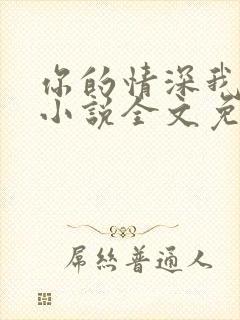 你的情深我
小说全文免
屌丝普通人